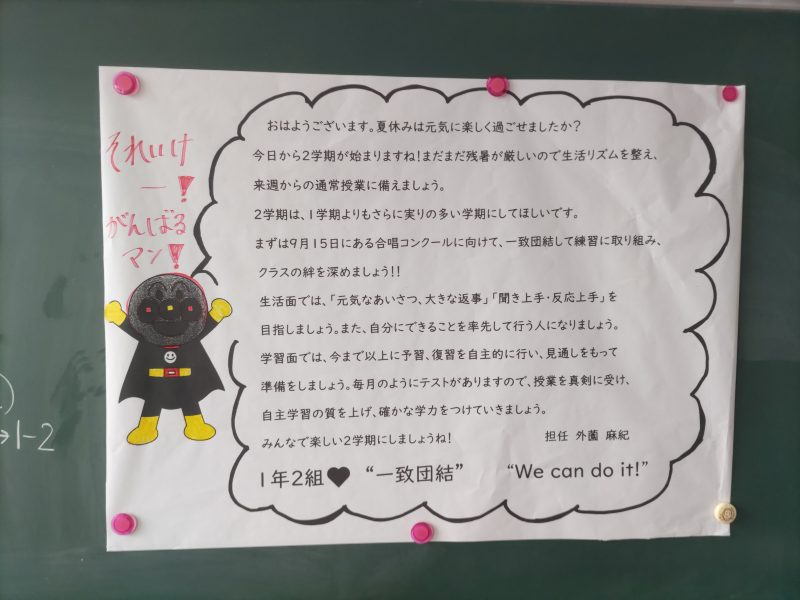 それいけ
ー!
がんばる
マン!
おはようございます。夏休みは元気に楽しく過ごせましたか?
今日から2学期が始まりますね!まだまだ残暑が厳しいので生活リズムを整え、
来週からの通常授業に備えましょう。
2学期は、1学期よりもさらに実りの多い学期にしてほしいです。
まずは9月15日にある合唱コンクールに向けて、一致団結して練習に取り組み、
クラスの絆を深めましょう!!
生活面では、「元気なあいさつ、大きな返事」「聞き上手・反応上手」を
目指しましょう。また、自分にできることを率先して行う人になりましょう。
学習面では、今まで以上に予習、復習を自主的に行い、見通しをもって
準備をしましょう。毎月のようにテストがありますので、授業を真剣に受け、
自主学習の質を上げ、確かな学力をつけていきましょう。
みんなで楽しい2学期にしましょうね! 担任 外薗 麻紀
1年2組♥ “一致団結” “We can do it!”
→1-2